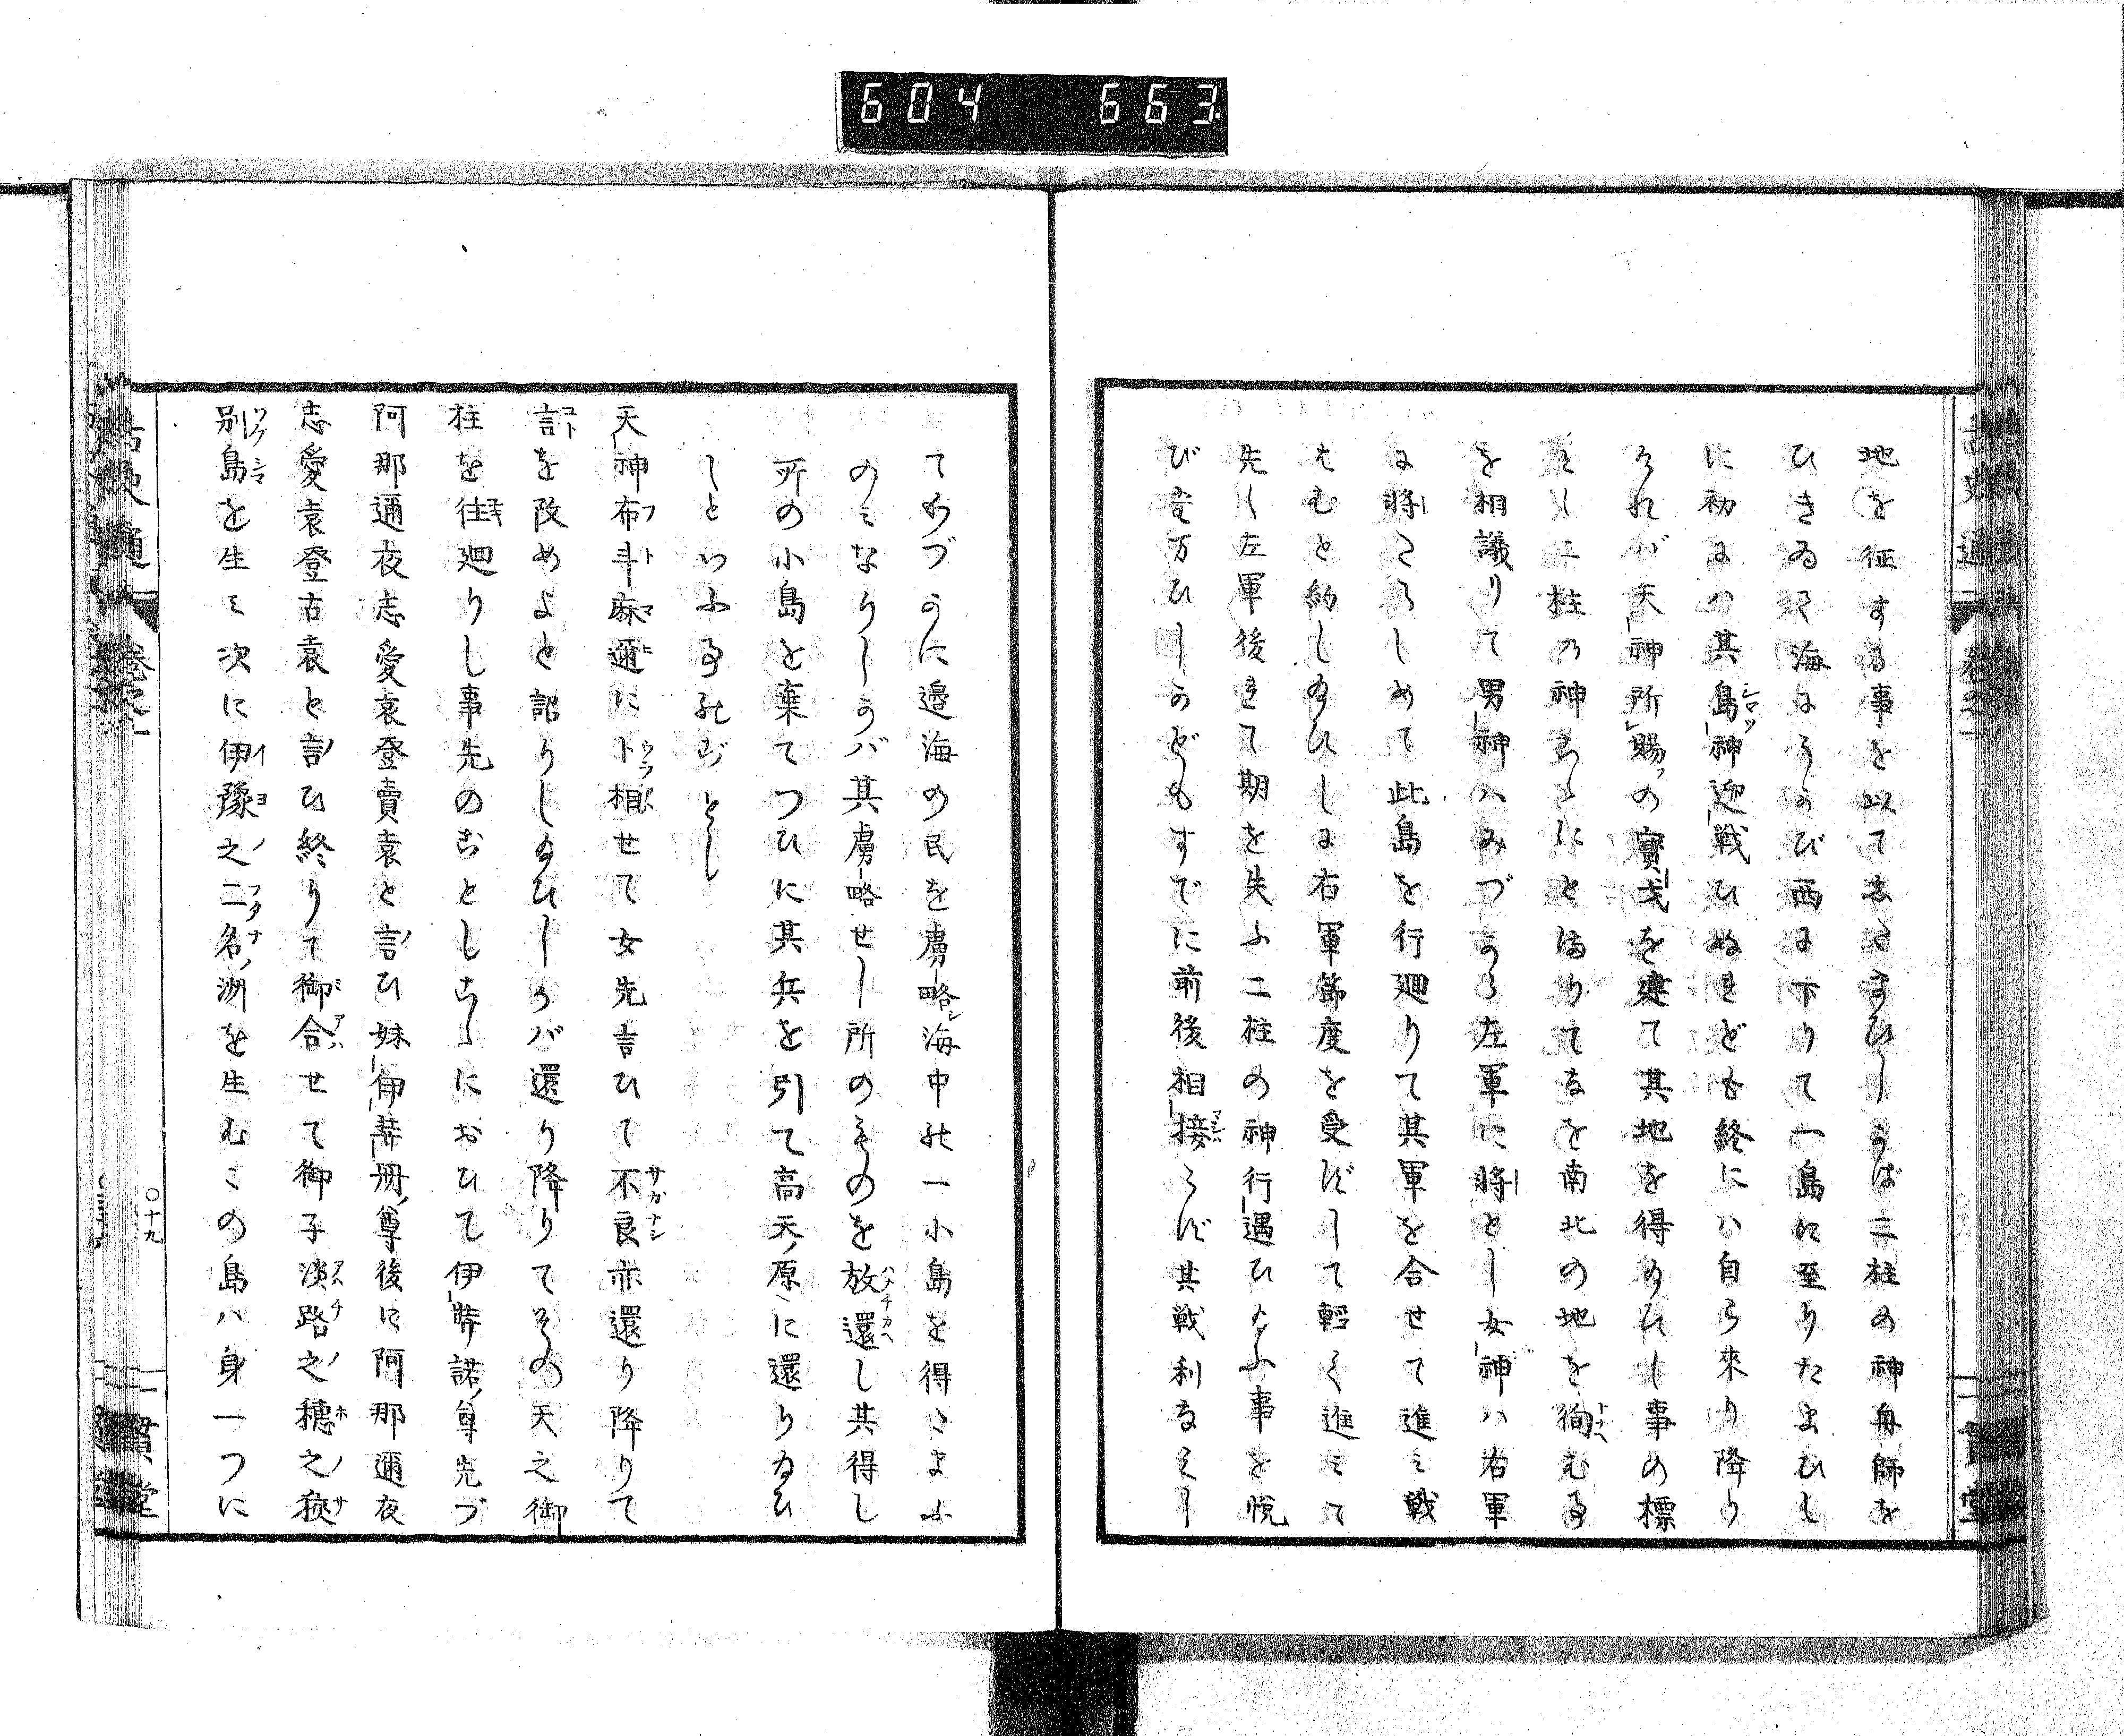 604 663
地を征する事を以てしたまひしかば二柱の神舟師を
ひきゐて海にうかび西に下りて一島に至りたまひし
に初にハ其島神迎戦ひぬれども終にハ自ら來り降り
それバ天神所賜の寶戈を建て其地を得給ひし事の標
とし二柱の神こゝにとゞまりてなを南北の地を徇む事
を相議りて男神ハみづから左軍に將とし女神ハ右軍
に將こらしめて此島を行廻りて其軍を合せて進ミ戰
はむと約し給ひしに右軍節度を受ずして輕く進ミて
先し左軍後れて期を失ふ二柱の神行遇ひ給ふ事を悦
び玄万ひしかどもすでに前後相接らず其戰利なくし
てわづかに邉海の民を虜略シ海中の一小島を得たまふ
のミなりしかバ其虜略せし所のものを放還し其得し
所の小島を棄てつひに其兵を引て高天ノ原に還り給ひ
しといふ事のごとし
天神布斗麻邇に卜相せて女先言ひて不良亦還り降りて
言を改めよと詔りし給ひしかバ還り降りてその天之御
柱を徃廻りし事先のごとしこゝにおひて伊弉諾ノ尊先づ
阿那邇夜志愛袁登賣袁と言ひ妹伊弉冊ノ尊後に阿那邇夜
志愛袁登古袁と言ひ終りて御合せて御子淡路之穗之狹
別島を生ミ次に伊豫之二名ノ洲を生むこの島ハ身一つに
古史通 卷之一
〇十九
一貫堂